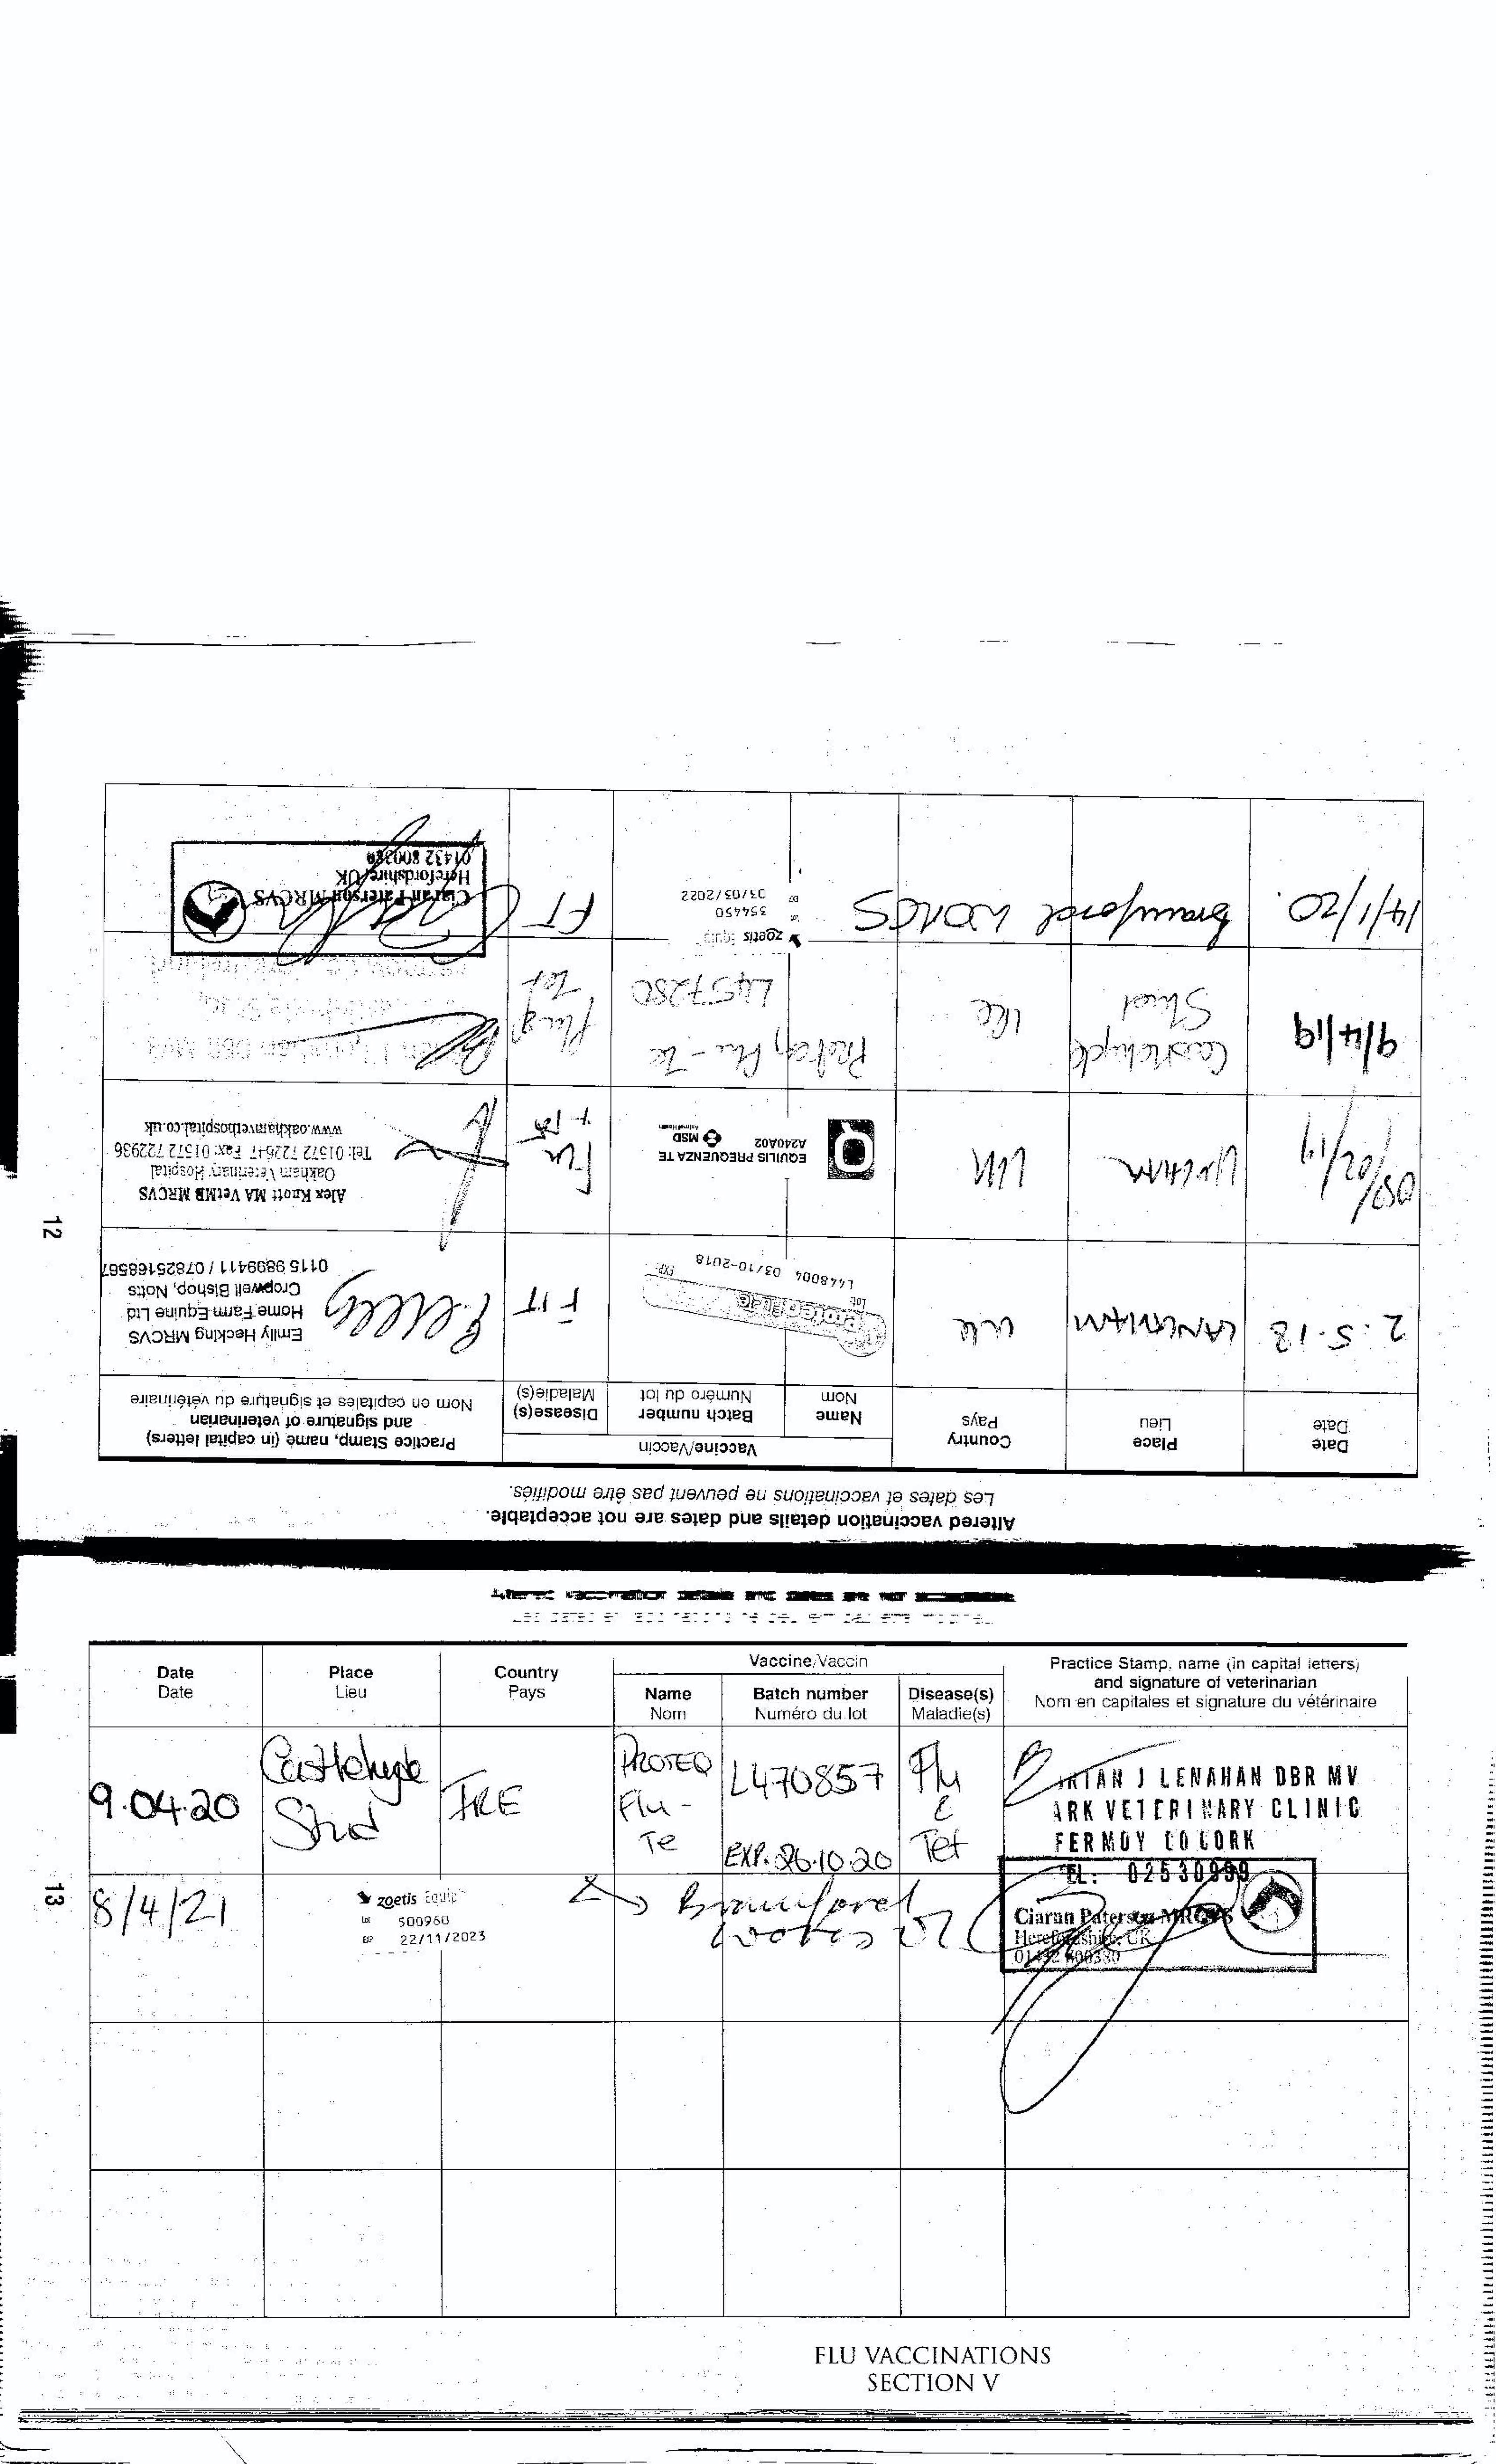 12
Altered vaccination details and dates are not acceptable.
Les dates et vaccinations ne peuvent pas être modifiés.
Date
Date
Place
Lieu
Country
Pays
Vaccine/Vaccin
Name
Nom
Batch number
Numéro du lot
Disease(s)
Maladie(s)
Practice Stamp, name (in capital letters)
and signature of veterinarian
Nom en capitales et signature du vétérinaire
2.5.18
LANGHAM
UK
ProteqFlu Te
Lot:
L448004 03/10-2018
EXP:
FIT
Emily Hecking MRCVS
Home Farm Equine Ltd
Cropwell Bishop, Notts
0115 9899411 / 07825168567
UK
EQUILIS PREQUENZA TE
A240A02
MSD
Animal Health
Flu
Alex Knott MA VetMB MRCVS
Oakham Veterinary Hospital
Tel: 01572 722647 Fax: 01572 722936
www.oakhamvethospital.co.uk
9/4/19
Castlehyde
Stud
IRE
Proteq Flu-Te
L457280
Flu &
Tet
14/1/20.
Bramford
zoetis Equip
Lot
354450
EXP
03/03/2022
FT
Ciaran Paterson MRCVS
Herefordshire, UK
01432 800380
13
Altered vaccination details and dates are not acceptable.
Les dates et vaccinations ne peuvent pas être modifiés.
Date
Date
Place
Lieu
Country
Pays
Vaccine/Vaccin
Name
Nom
Batch number
Numéro du lot
Disease(s)
Maladie(s)
Practice Stamp, name (in capital letters)
and signature of veterinarian
Nom en capitales et signature du vétérinaire
9.04.20
Castlehyde
Stud
IRE
PROTEQ
Flu-
Te
L470857
EXP. 26.10.20
Flu
&
Tet
BRIAN J LENAHAN DBR MV
ARK VETERINARY CLINIC
FERMOY CO CORK
TEL: 02530999
8/4/21
zoetis Equip
Lot 500960
EXP 22/11/2023
Bramford
Ciaran Paterson MRCVS
Herefordshire, UK
01432 800380
FLU VACCINATIONS
SECTION V